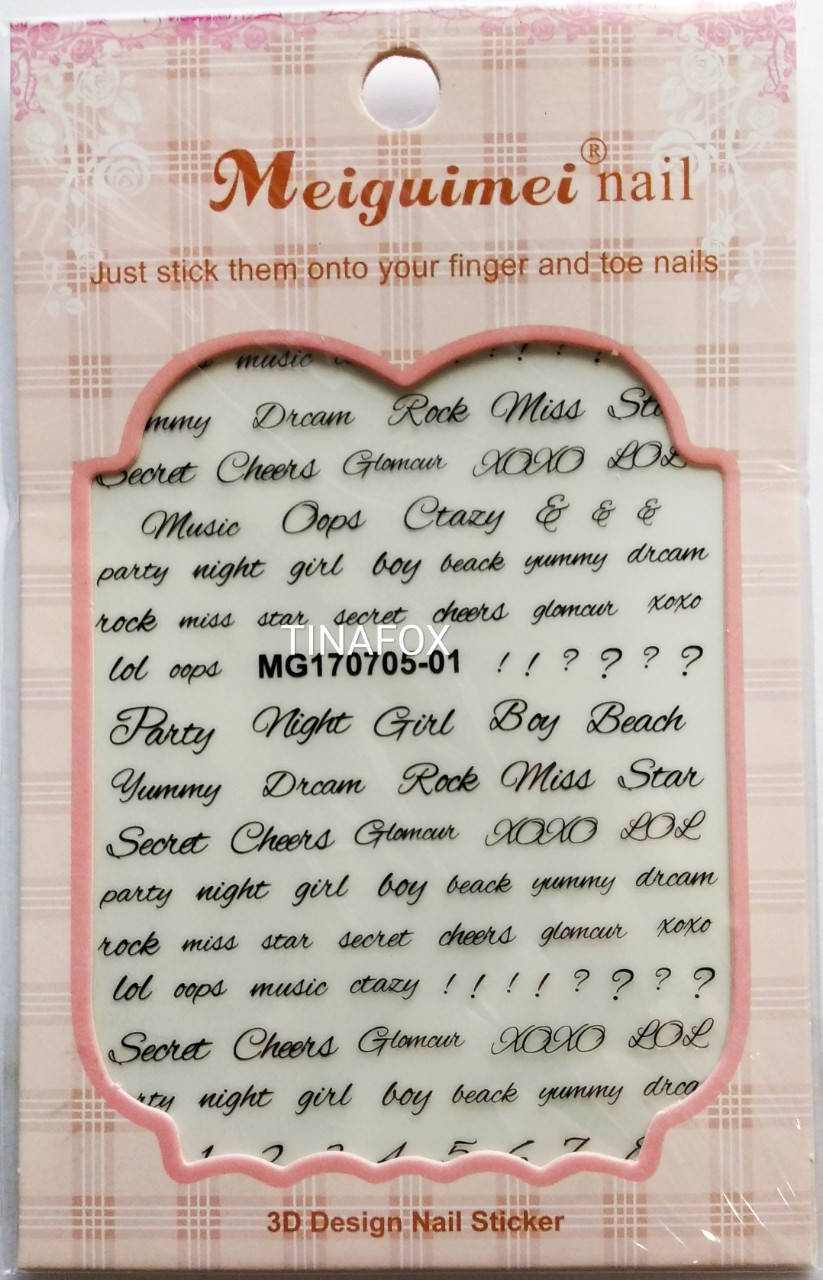 Meiguimei® nail
Just stick them onto your finger and toe nails
music ! ! ? !
mmy Drcam Rock Miss Sta
Secret Cheers Glomcur XOXO LOL
Music Oops Ctazy & & &
party night girl boy beack yummy drcam
rock miss star secret cheers glomcur xoxo
TINAFOX
lol oops MG170705-01 ! ! ? ? ? ?
Party Night Girl Boy Beach
Yummy Drcam Rock Miss Star
Secret Cheers Glomcur XOXO LOL
party night girl boy beack yummy drcam
rock miss star secret cheers glomcur xoxo
lol oops music ctazy ! ! ! ! ? ? ? ?
Secret Cheers Glomcur XOXO LOL
rty night girl boy beack yummy drca
1 2 3 4 5 6 7 8
3D Design Nail Sticker